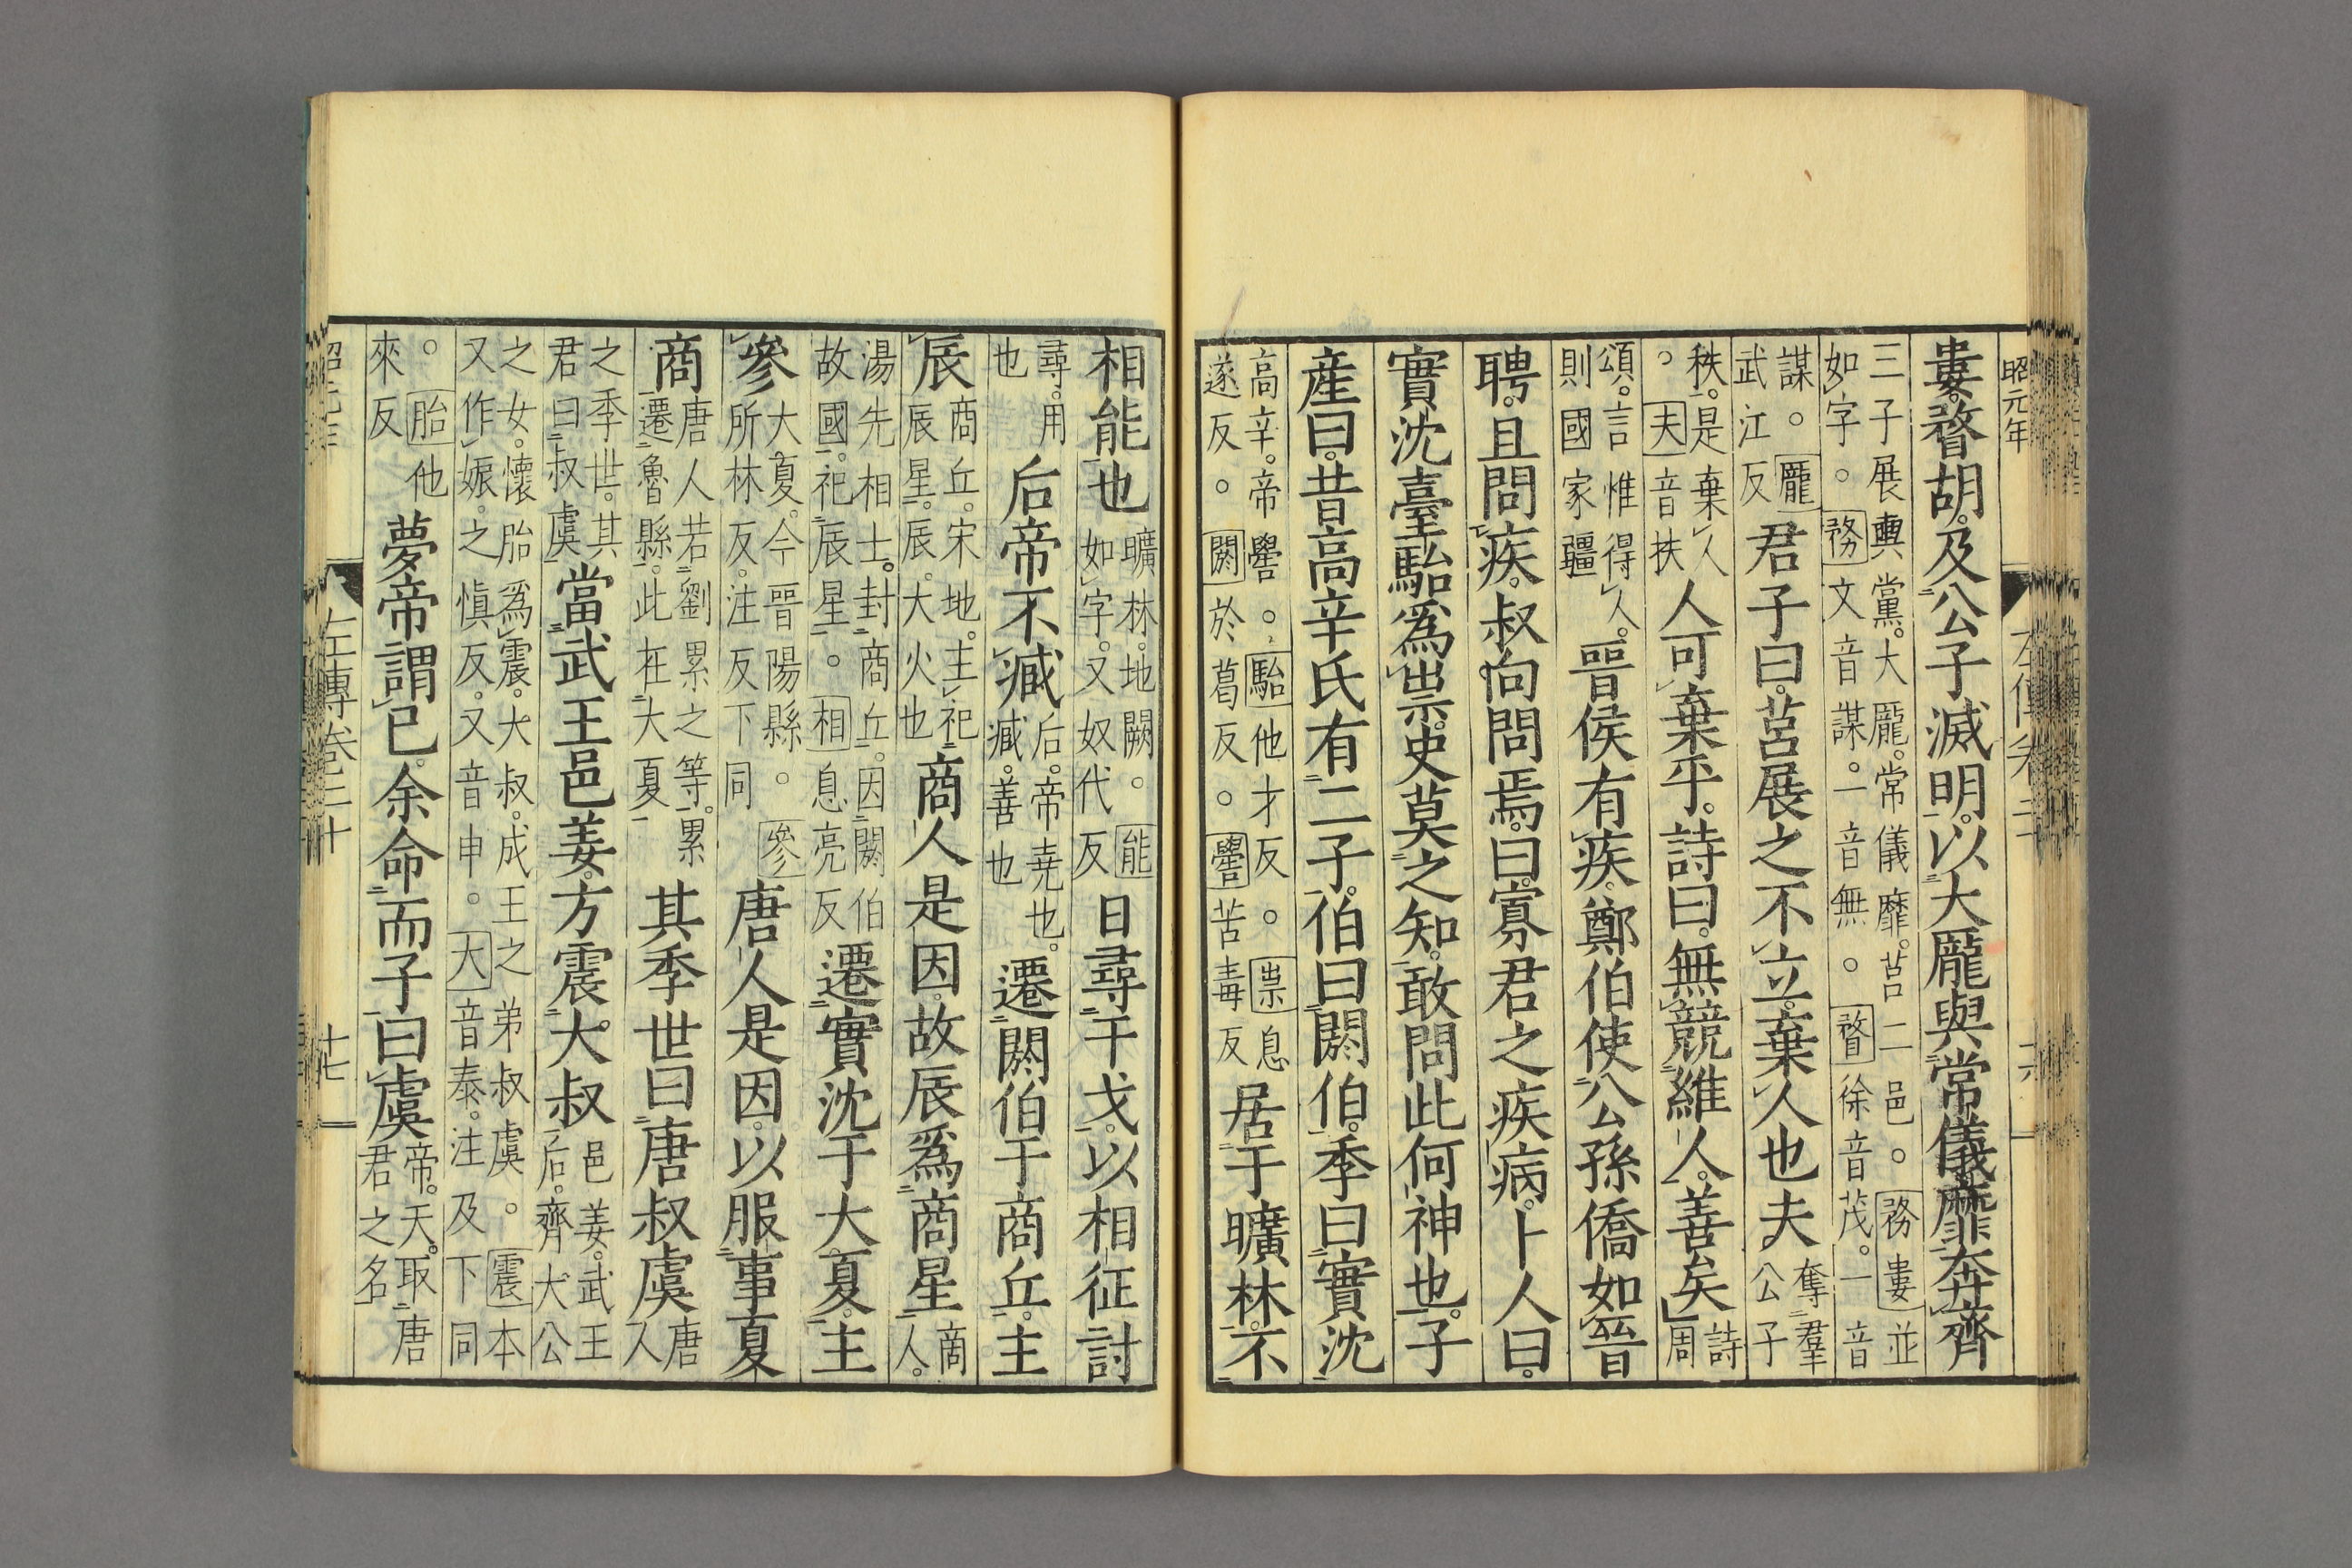 昭元年
婁。瞀胡。及公子滅明。以大厖與常儀靡奔齊
三子展輿黨。大厖。常儀靡。莒二邑。務婁並
如字。務文音謀。一音無。瞀徐音茂。一音
謀。厖
武江反
君子曰。莒展之不立。棄人也夫。
奪羣
公子
秩。是棄人
。夫音扶
人可棄乎。詩曰。無競維人。善矣
詩
周
頌。言惟得人。
則國家疆
晉侯有疾。鄭伯使公孫僑如晉
聘。且問疾。叔向問焉。曰。寡君之疾病。卜人曰。
實沈臺駘爲祟。史莫之知。敢問此何神也。子
產曰。昔高辛氏有二子。伯曰閼伯。季曰實沈
高辛。帝嚳。駘他才反。祟息
遂反。閼於葛反。嚳苦毒反
居于曠林。不
相能也
曠林。地闕。能
如字。又奴代反
日尋干戈。以相征討
尋。用
也
后帝不臧
后。帝堯也。
臧。善也
遷閼伯于商丘。主
辰
商丘。宋地。主祀
辰星。辰。大火也
商人是因。故辰爲商星
商
人。
湯先相土。封商丘。因閼伯
故國。祀辰星。相息亮反
遷實沈于大夏。主
參
大夏。今晉陽縣。參
所林反。注反下同
唐人是因。以服事夏
商
唐人若劉累之等。累
遷魯縣。此在大夏
其季世曰唐叔虞
唐
人
之季世。其
君曰叔虞
當武王邑姜。方震大叔
邑姜。武王
后。齊大公
之女。懷胎爲震。大叔。成王之弟叔虞。震本
又作娠。之慎反。又音申。大音泰。注及下同
。胎他
來反
夢帝謂己。余命而子曰虞
帝。天。取唐
君之名
左傳卷二十
十七